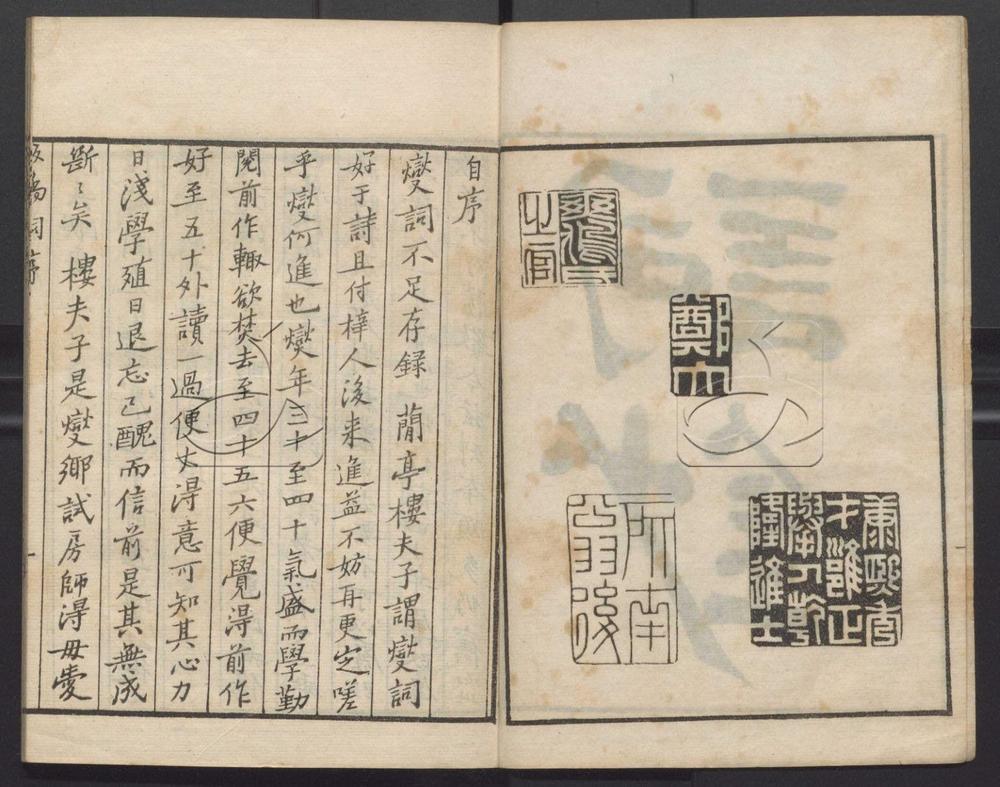 爽鳩氏
之官
鄭大
康熙秀
才雍正
舉人乾
隆進士
所南
翁後
自序
燮詞不足存録 蕳亭樓夫子謂燮詞
好于詩且付梓人後来進益不妨再更定嗟
乎燮何進也燮年三十至四十氣盛而學勤
閱前作輒欲焚去至四十五六便覺得前作
好至五十外讀一過便大得意可知其心力
日淺學殖日退忘己醜而信前是其無成
斷〻矣 樓夫子是燮鄉試房師得毋愛
板橋詞序 一